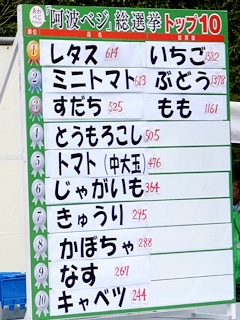 「阿波ベジ」総選挙 トップ10
1 レタス 614 いちご 1582
2 ミニトマト 613 ぶどう 1378
3 すだち 525 もも 1161
4 とうもろこし 505
5 トマト（中大玉） 476
6 じゃがいも 364
7 きゅうり 295
8 かぼちゃ 288
9 なす 267
10 キャベツ 244